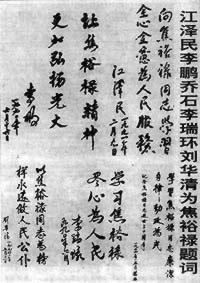 江泽民李鹏乔石李瑞环刘华清为焦裕禄题词
向焦裕禄同志学习
全心全意为人民服务
江泽民
一九九一年二月九日
让焦裕禄精神
更加弘扬光大
李鹏
学习焦裕禄同志
学习焦裕禄
尽心为人民
李瑞环
以焦裕禄同志为榜
样永远做人民公仆
刘华清